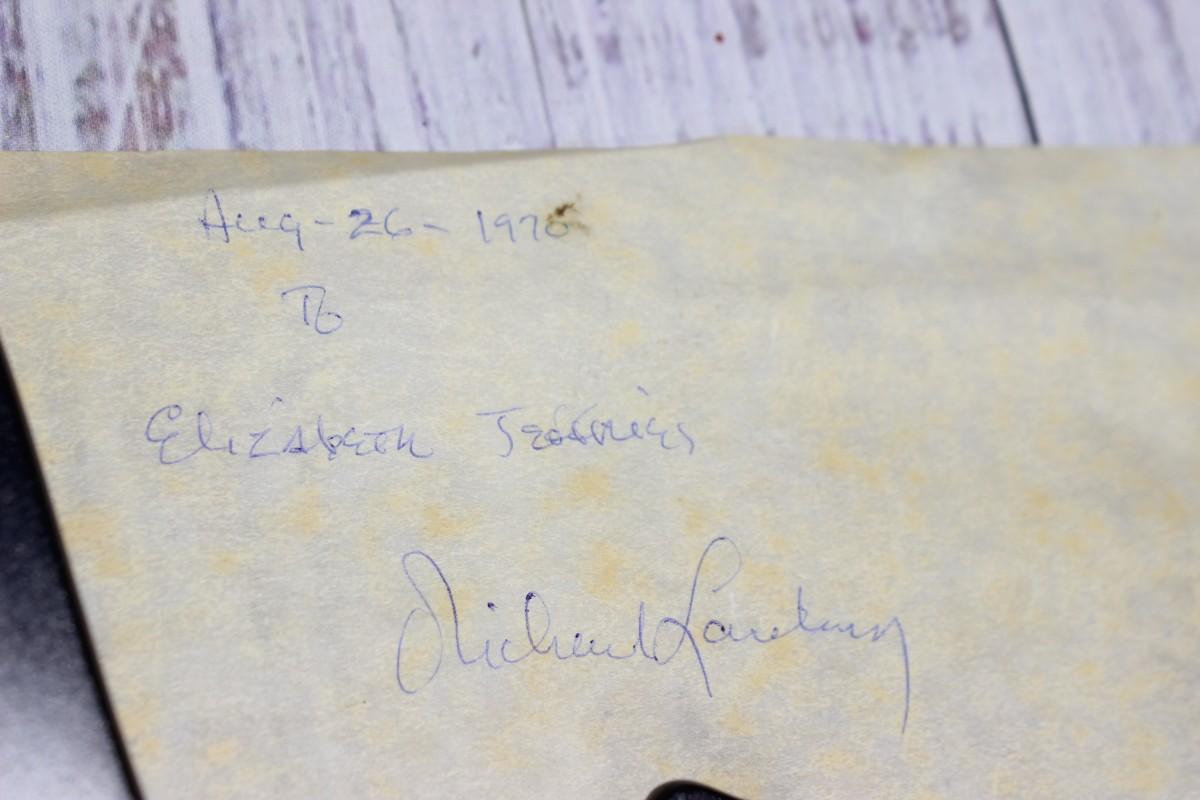 Aug-26-1970
To
Elizabeth Jeffries
Richard